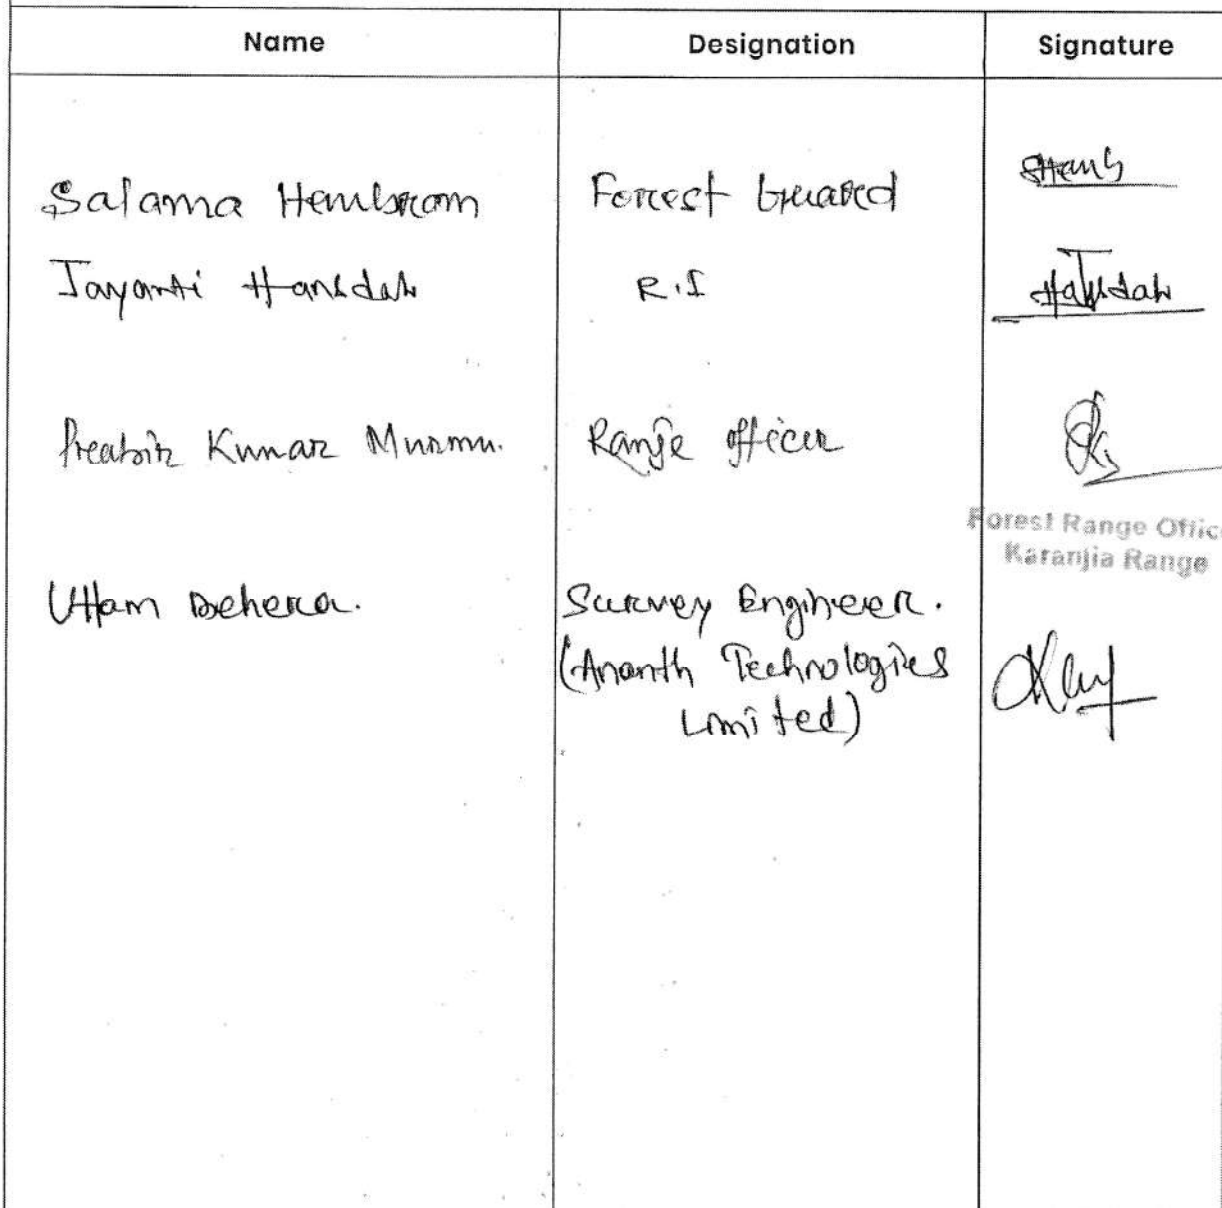 Name Designation Signature
Salama Hembram Forest Guard
Jayanti Hansdah R.I Hansdah
Prabir Kumar Murmu. Range officer
Forest Range Offic
Karanjia Range
Uttam Behera. Survey Engineer.
(Ananth Technologies
Limited)